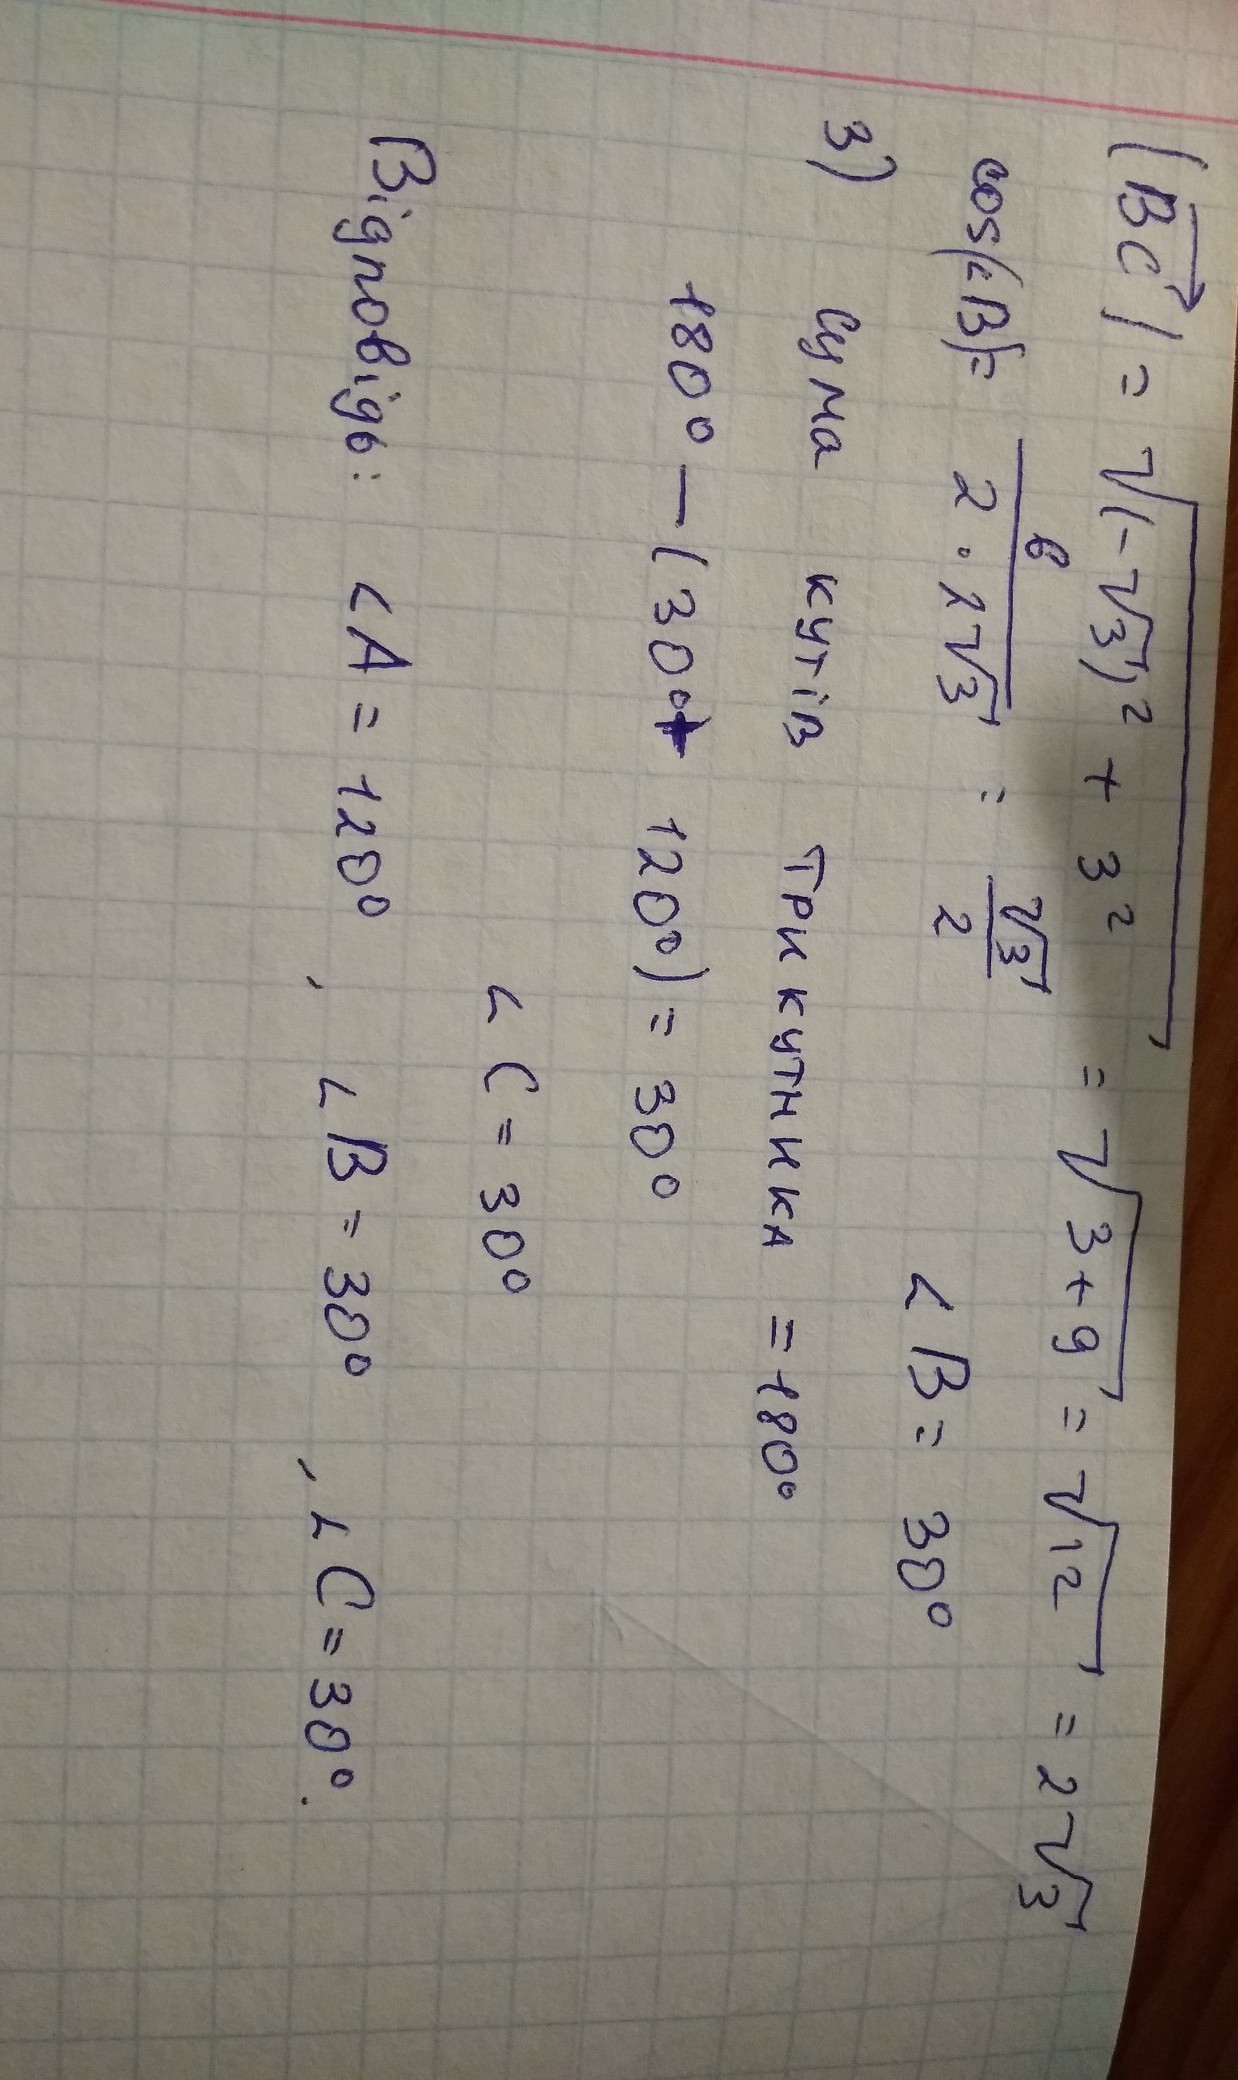 |BC| = √(-√3)² + 3² = √3+9 = √12 = 2√3
cos(∠B) = 6/2·2√3 = √3/2 ∠B = 30°
3) Сума кутів трикутника = 180°
180° — (30° + 120°) = 30°
∠C = 30°
Відповідь: ∠A = 120°, ∠B = 30°, ∠C = 30°.